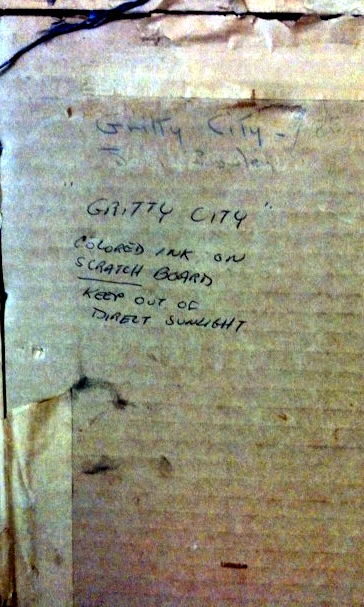 Gritty City -
"GRITTY CITY"
COLORED INK ON
SCRATCH BOARD
KEEP OUT OF
DIRECT SUNLIGHT